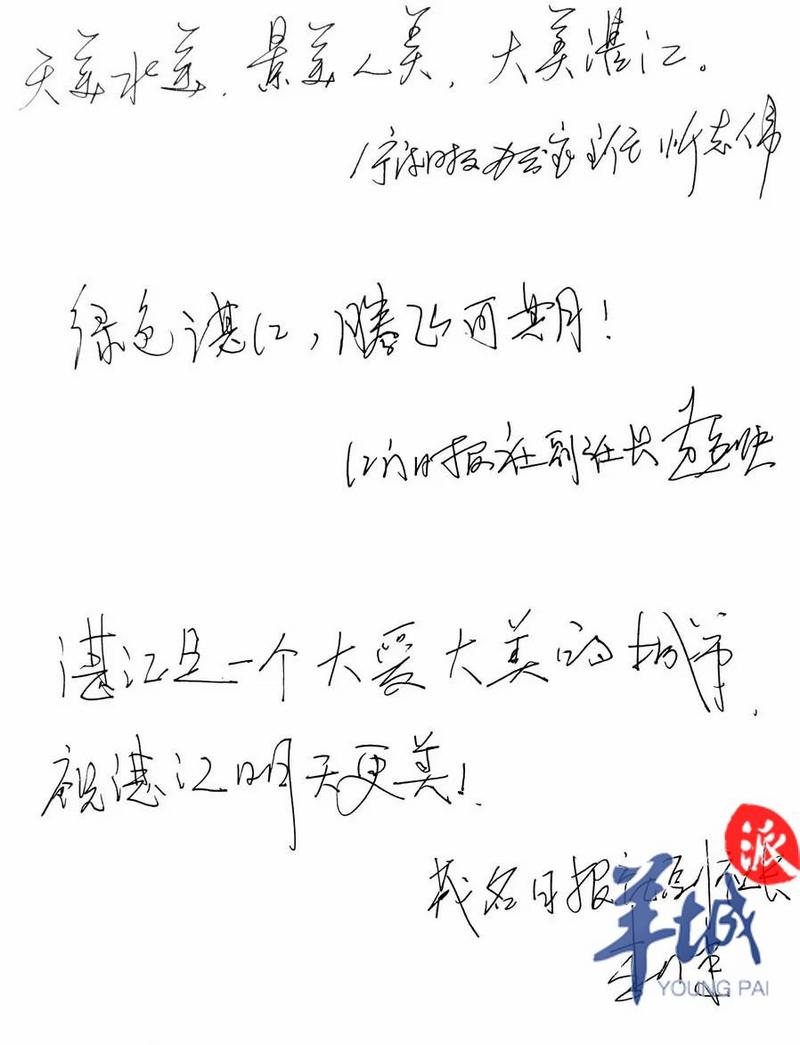 天美水美,景美人美,大美湛江。
日报办公室主任 志伟
绿色湛江,腾飞可期!
江门日报社副社长 黄
湛江是一个大爱大美的城市,
祝湛江明天更美!
茂名日报社副社长
派
羊城
YOUNG PAI